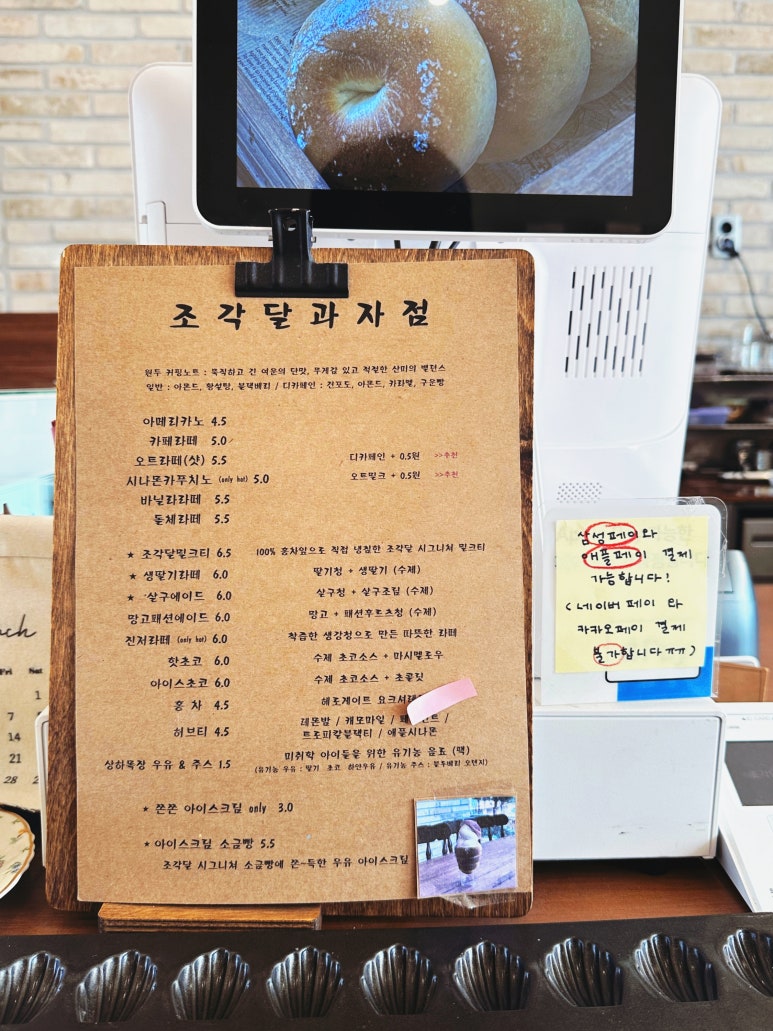 조각달과자점
원두 커핑노트 : 묵직하고 긴 여운의 단맛, 무게감 있고 적절한 산미의 밸런스
일반 : 아몬드, 황설탕, 블랙베리 / 디카페인 : 건포도, 아몬드, 카라멜, 구운빵
아메리카노 4.5
카페라떼 5.0
오트라떼(샷) 5.5 디카페인 + 0.5원 >>추천
시나몬카푸치노 (only hot) 5.0 오트밀크 + 0.5원 >>추천
바닐라라떼 5.5
돌체라떼 5.5
★ 조각달밀크티 6.5 100% 홍차잎으로 직접 냉침한 조각달 시그니쳐 밀크티
★ 생딸기라떼 6.0 딸기청 + 생딸기 (수제)
★ 살구에이드 6.0 살구청 + 살구조림 (수제)
망고패션에이드 6.0 망고 + 패션후르츠청 (수제)
진저라떼 (only hot) 6.0 착즙한 생강청으로 만든 따뜻한 라떼
핫초코 6.0 수제 초코소스 + 마시멜로우
아이스초코 6.0 수제 초코소스 + 초콜릿
홍 차 4.5 해로게이트 요크셔
허브티 4.5 레몬밤 / 캐모마일 /
트로피칼블랙티 / 애플시나몬
상하목장 우유 & 주스 1.5 미취학 아이들을 위한 유기농 음료 (팩)
(유기농 우유 : 딸기 초코 하얀우유 / 유기농 주스 : 블루베리 오렌지)
★ 쫀쫀 아이스크림 only 3.0
★ 아이스크림 소금빵 5.5
조각달 시그니쳐 소금빵에 쫀~득한 우유 아이스크림
삼성페이와
애플페이 결제
가능합니다!
(네이버 페이 와
카카오페이 결제
불가합니다ㅠㅠ)
Fri Sat
1
7
14
21
28